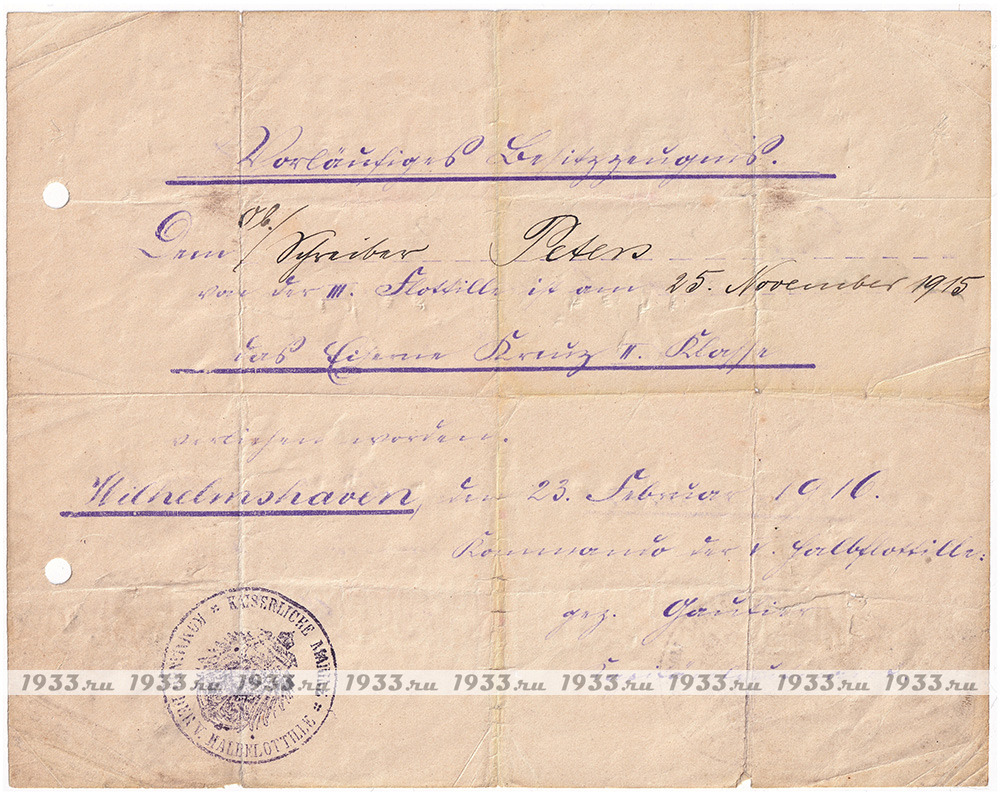 Vorläufiges Besitzzeugnis.
Dem Ob./Schreiber Peters
von der III. Flottille ist am 25. November 1915
das Eiserne Kreuz II. Klasse
verliehen worden.
Wilhelmshaven, den 23. Februar 1916.
Kommando der V. Halbflottille:
gez. Gautier
1933.ru 1933.ru 1933.ru 1933.ru 1933.ru 1933.ru 1933.ru 1933.ru 1933.ru
KAISERLICHE MARINE
KOMMANDO DER V. HALBFLOTTILLE